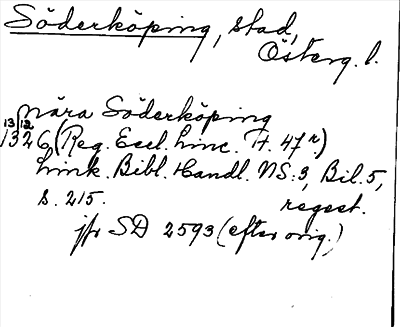 Söderköping, stad,
Österg. l.
nära Söderköping
13/12
1326 (Reg. Eccl. Linc. f. 47r)
Link. Bibl. Handl. NS:3, Bil. 5,
s. 215.
regest.
jfr SD 2593 (efter orig.)